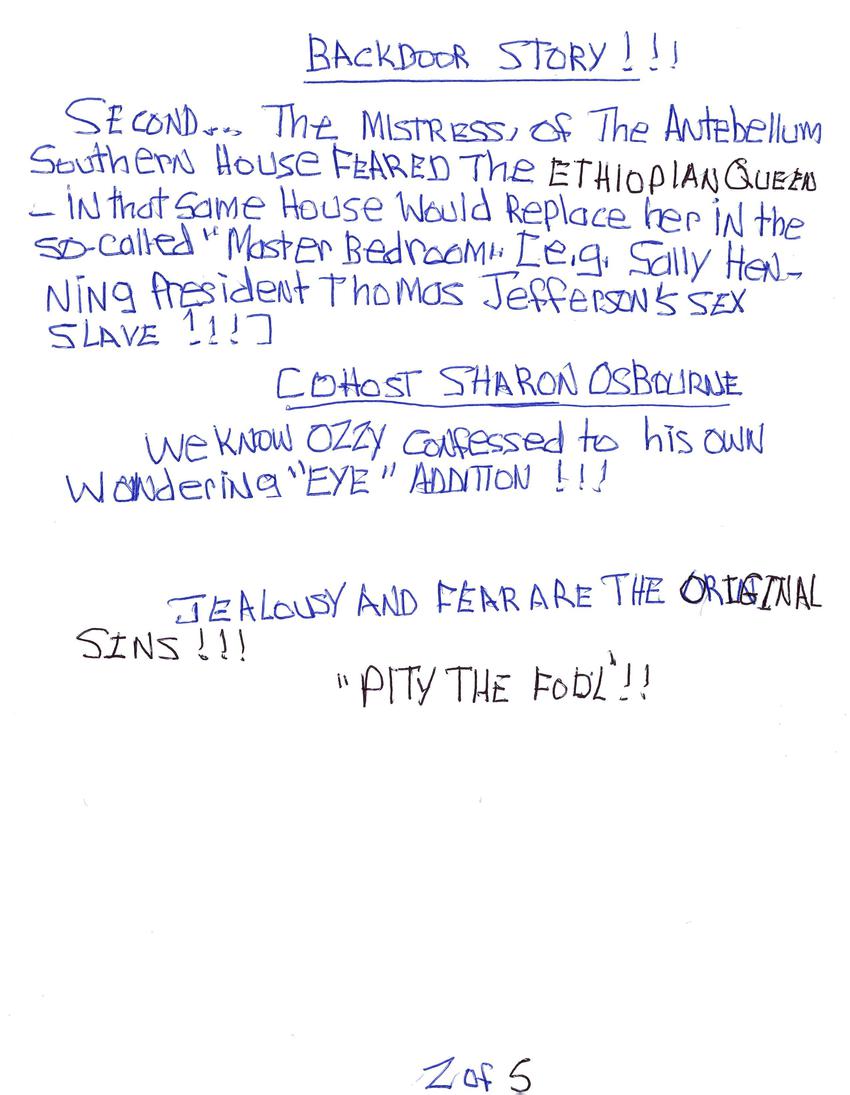 BACKDOOR STORY!!!
SECOND... The MISTRESS, of The Antebellum
Southern House FEARED The ETHIOPIAN QUEEN
- IN that Same House Would Replace her in the
so-called "Master Bedroom". [e.g. Sally Hen-
Ning President Thomas Jefferson's SEX
SLAVE !!!]
COHOST SHARON OSBOURNE
We KNOW OZZY Confessed to his OWN
Wondering "EYE" ADDITION !!!
JEALOUSY AND FEAR ARE THE ORIGINAL
SINS!!!
"PITY THE FOOL"!!
2 of 5